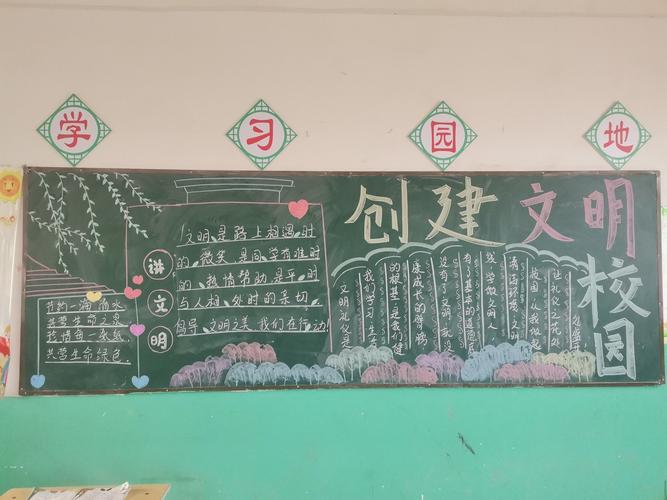 学习园地
创建文明
校园
讲文明
文明是路上相遇时
的微笑,是同学有难时
的热情帮助,是平时
与人相处时的亲切,
倡导文明之美,我们在行动!
节约一滴水
共营生命之泉
珍惜每一张纸
共营生命绿色.
文明礼仪是
我们学习、生活
的根基,是我们健
康成长的臂膀
没有了文明,就没
有了基本的道德底
线,学做文明人,
清洁环境,文明
校园,从我做起
让礼仪之花处
处盛开